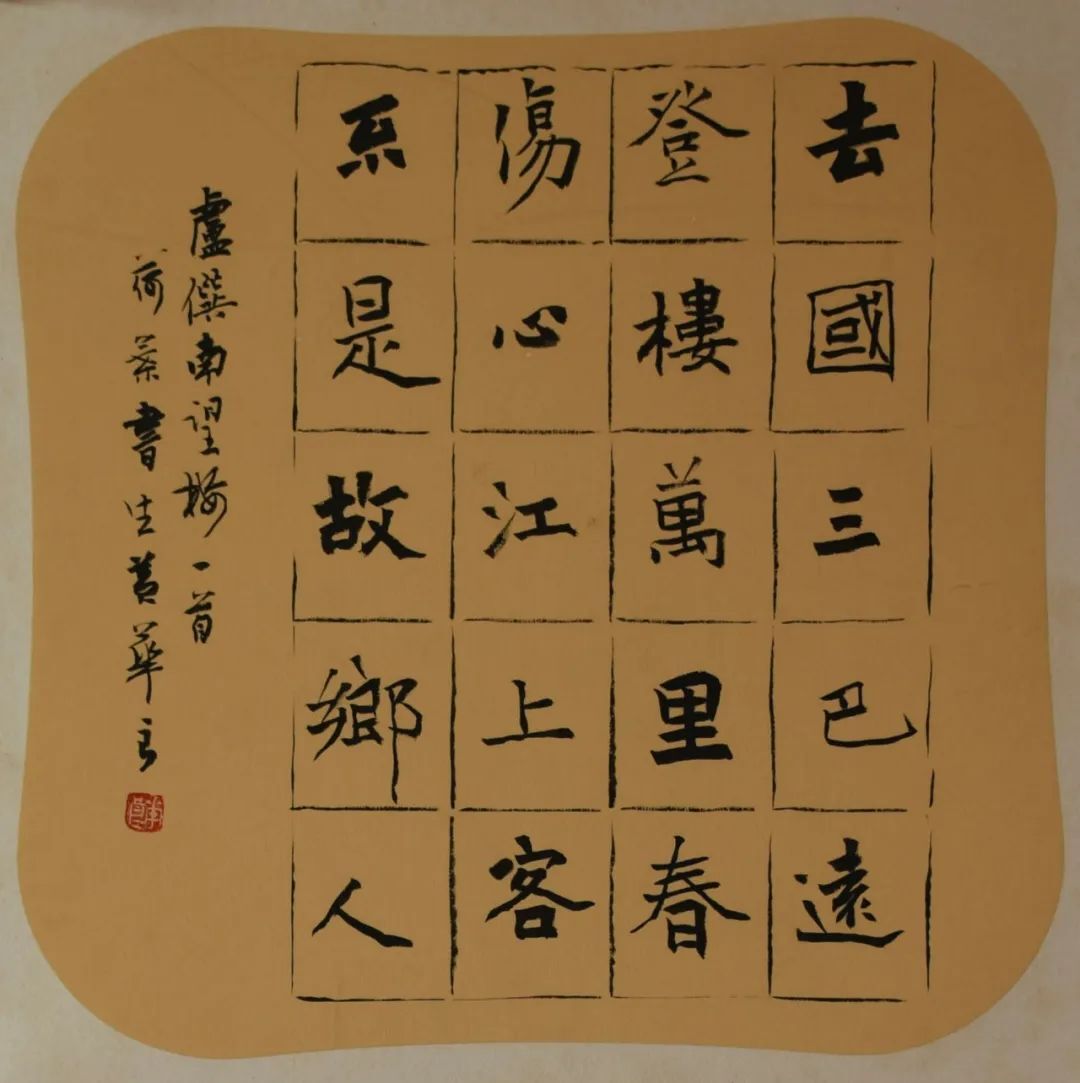 去國三巴遠
登樓萬里春
傷心江上客
系是故鄉人
盧僎南望樓一首
荷葉書生黃華良